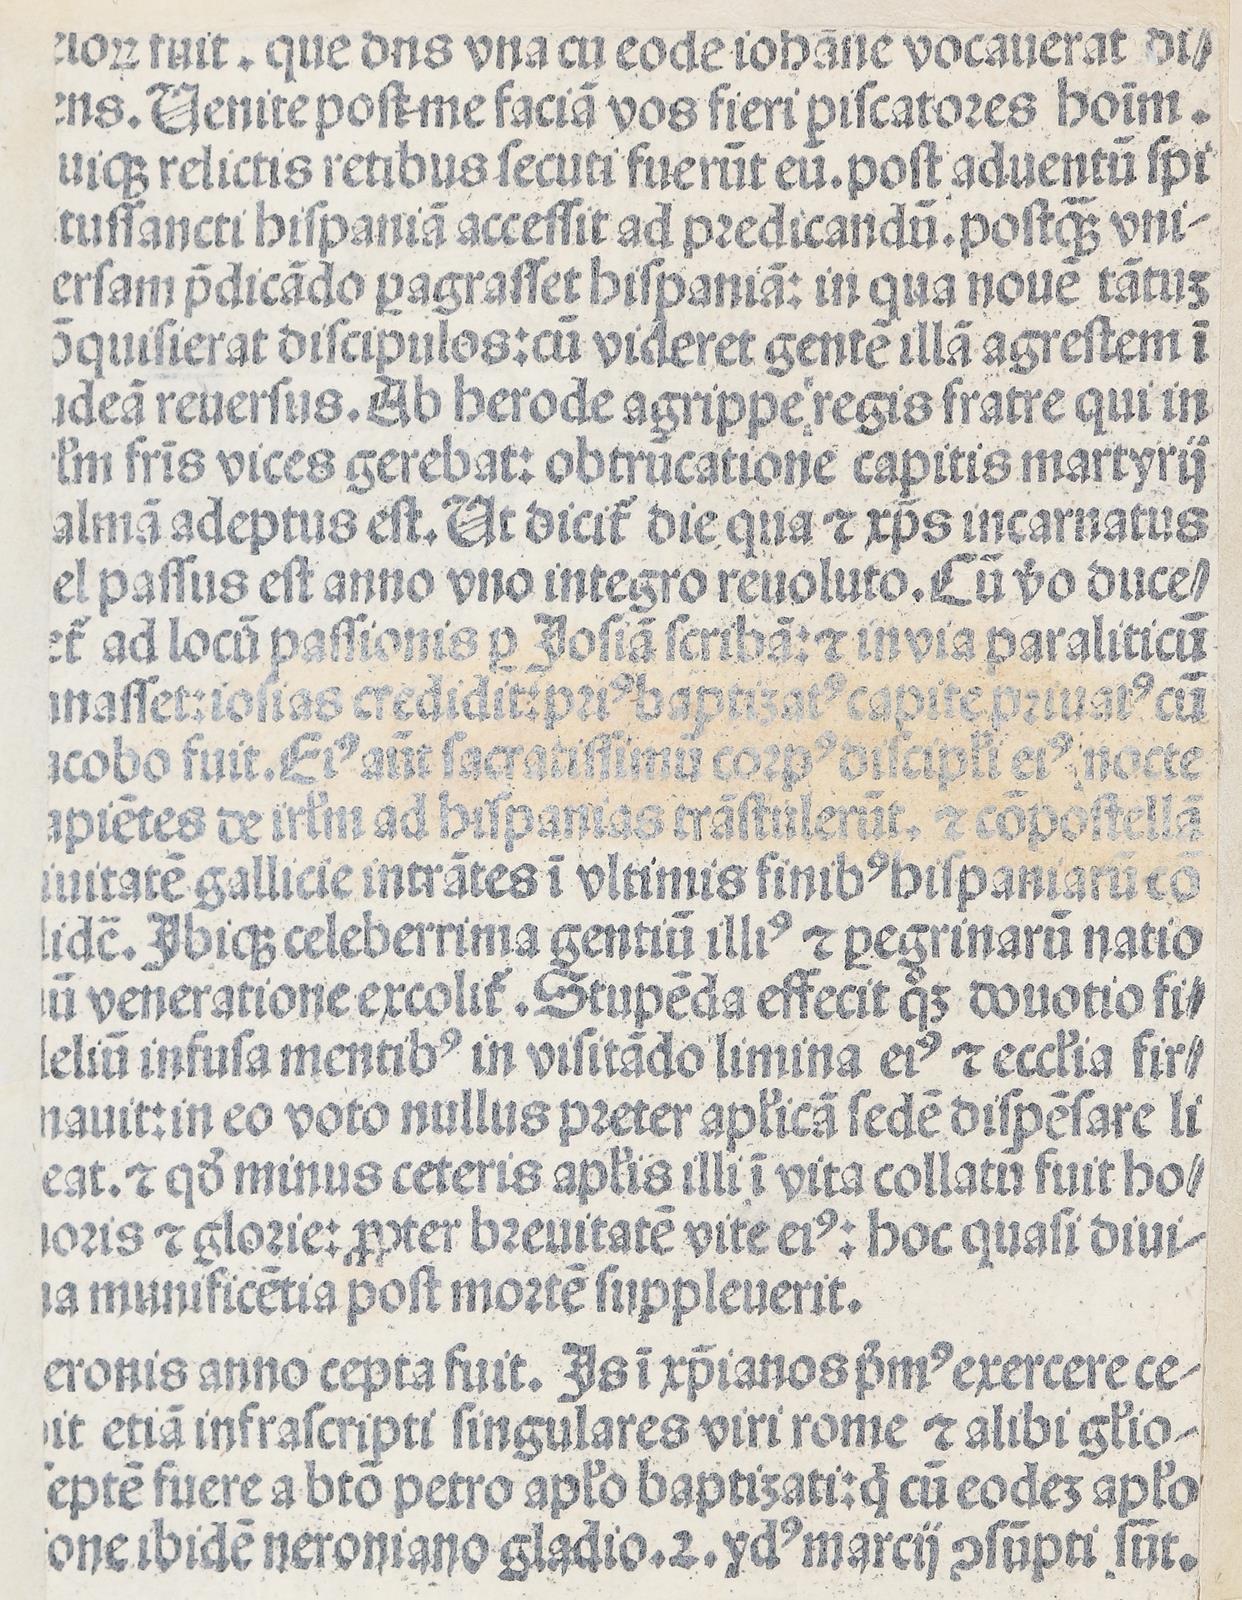 eioꝛ fuit . que dn̄s vna cū eode iohāne vocauerat di//
ens. Uenite post me faciā vos fieri piscatoꝛes hoīm .
uiqꝫ relictis retibus secuti fuerūt eū. post aduentū spi
tussancti hispaniā accessit ad pꝛedicandū. postqꝫ̄ vni-
ersam p̄dicādo ꝑagrasset hispaniā: in qua nouē tātuꝫ
ōquisierat discipulos: cū videret gentē illā agrestem ī
udeā reuersus. Ab herode agrippe regis fratre qui in
rl̓m fr̄is vices gerebat: obtrūcatione capitis martyrij
almā adeptus est. Ut dicit̄ die qua ⁊ xp̄s incarnatus
el passus est anno vno integro reuoluto. Cū v̓o duce//
et̄ ad locū passionis ꝑ Josiā scribā: ⁊ in via paraliticū
anasset: iosias credidit: pꝛiꝰ baptizatꝰ capite pꝛiuatꝰ cū
acobo fuit. Eiꝰ aūt sacratissimū coꝛpꝰ discipl̓i eiꝰ nocte
apiētes de irl̓m ad hispanias trāstulerūt. ⁊ cōpostellā
iuitatē gallicie intrātes ī vltimis finibꝰ hispaniarū cō
lidc̄. Ibiqꝫ celeberrima gentiū illiꝰ ⁊ ꝑegrinarū natio
nū veneratione excolit̄ . Stupēda effecit q̓ꝫ deuotio fi//
deliū infusa mentibꝰ in visitādo limina eiꝰ ⁊ eccl̓ia fir//
mauit: in eo voto nullus pꝛeter apl̓icā sedē dispēsare li
ceat. ⁊ qd̓ minus ceteris apl̓is illi ī vita collatū fuit ho//
noꝛis ⁊ gloꝛie: ꝓpter bꝛeuitatē vite eiꝰ: hoc quasi diui-
na munificētia post moꝛtē suppleuerit.
eronis anno cepta fuit. Is ī xp̄ianos p̓mꝰ exercere ce-
pit etiā infrascripti singulares viri rome ⁊ alibi gl̓io-
septē fuere a btō petro apl̓o baptizati: q̓ cū eodeꝫ apl̓o
one ibidē neroniano gladio. 2. ydꝰ marcij ↄsūpti sūt.